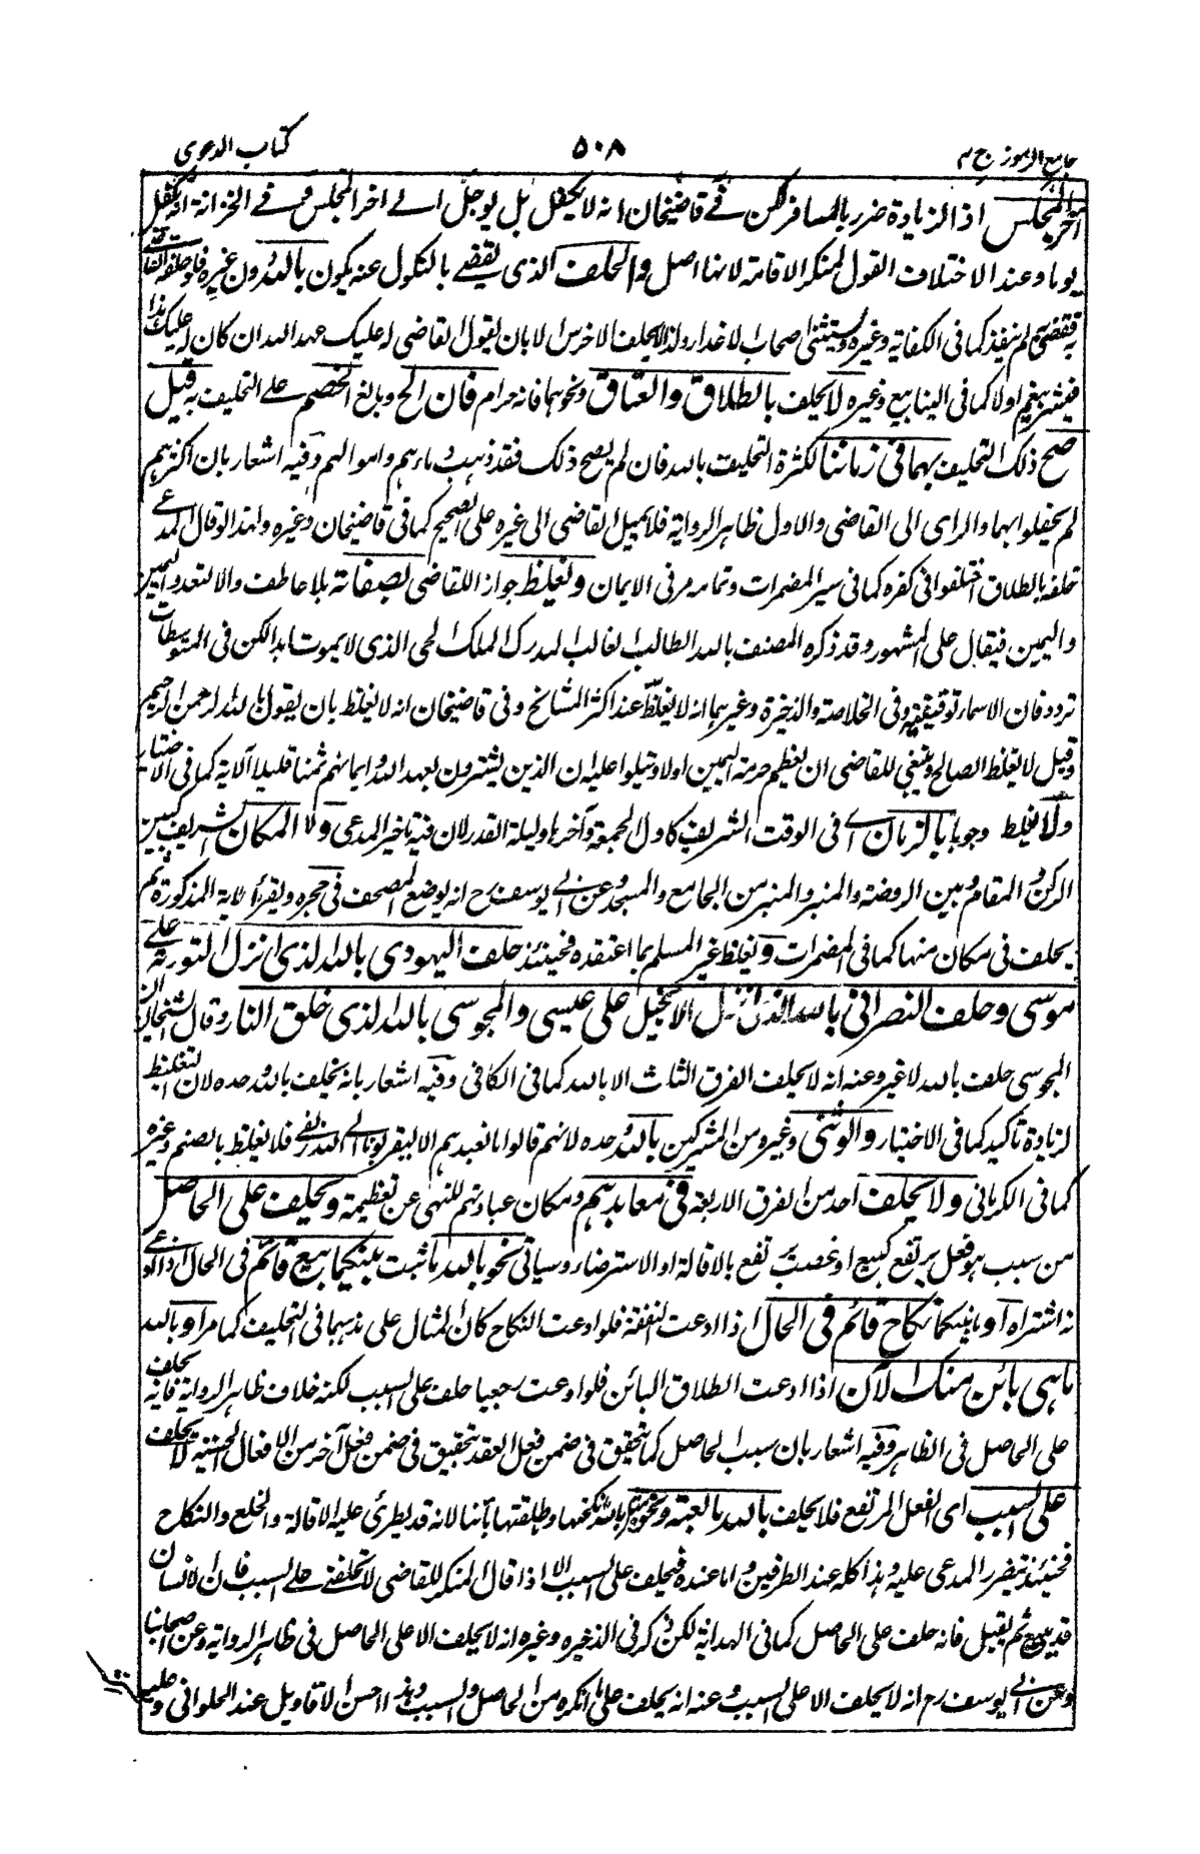 جامع الرموز ج ۲ ۵۰۸ كتاب الدعوى
آخر المجلس اذ الزيادة ضرر بالمسافر لكن في قاضيخان انه لا يكفل بل يوجل الى اخر المجلس و في الخزانة انه يكفل
يوما وعند الاختلاف القول لمنكر الاقامة لانها اصل والحلف الذى يقضى بالنكول عنه يكون بالله دون غيره فلو حلفه القاضى
فقضى لم ينفذ كما فى الكفاية وغيره ويستثنى اصحاب الاعذار ولذا لا يحلف الاخرس الا بان يقول القاضى له عليك عهد الله ان كان له عليك هذا
فيشير بنعم او لا كما فى الينابيع وغيره لا يحلف بالطلاق والعتاق ونحوهما فانه حرام فان الح وبالغ الخصم على التحليف به قيل
صح ذلك التحليف بهما فى زماننا لكثرة التحليف بالله فان لم يصح ذلك فقد ذهب دماءهم واموالهم وفيه اشعار بان اكثرهم
لم يحفلوا بهما والراى الى القاضى والاول ظاهر الرواية فلا يميل القاضى الى غيره على الصحيح كما فى قاضيخان وغيره ولهذا لو قال المدعى
حلفه بالطلاق اختلفوا فى كفره كما فى سير المضمرات وتمامه مر فى الايمان وتغلظ جوازا للقاضى بصفاته بلا عاطف والا لتعدد اليمين
واليمين فيقال على المشهور وقد ذكره المصنف بالله الطالب الغالب المدرك الملك الحى الذى لا يموت ابدا لكن فى المتوسطات
تردد فان الاسماء توقيفية وفى الخلاصة والذخيرة وغيرهما انه لا يغلظ عند اكثر المشائخ و فى قاضيخان انه لا يغلظ بان يقول بالله الرحمن الرحيم
وقيل لا يغلظ الصالح وينبغى للقاضى ان يعظم حرمة اليمين اولا ويتلوا عليه ان الذين يشترون بعهد الله وايمانهم ثمنا قليلا الآية كما فى الاختيار
ولا يغلظ وجوبا بالزمان اى فى الوقت الشريف كاول الجمعة وآخرها وليلة القدر لان فيه تاخير المدعى ولا المكان الشريف كبين
الركن و المقام وبين الروضة والمنبر والمنبر من الجامع والمسجد وعن ابى يوسف رح انه يوضع المصحف فى حجره ويقرأ الآية المذكورة ثم
يحلف فى مكان منها كما فى المضمرات وتغلظ غير المسلم بما اعتقده فحينئذ حلف اليهودى بالله الذى انزل التورٰة على
موسى وحلف النصرانى بالله الذى انزل الانجيل على عيسى والمجوسى بالله الذى خلق النار وقال الشيخان ان
المجوسى حلف بالله لا غير وعنه انه لا يحلف الفرق الثلث الا بالله كما فى الكافى وفيه اشعار بانه يحلف بالله وحده لان التغليظ
لزيادة تاكيد كما فى الاختيار والوثنى وغيره من المشركين بالله وحده لانهم قالوا ما نعبدهم الا ليقربونا الى الله زلفى فلا يغلظ بالصنم وغيره
كما فى الكرمانى ولا يحلف احد من الفرق الاربعة فى معابدهم ومكان عبادتهم للنهى عن تعظيمه ويحلف على الحاصل
من سبب هو فعل يرتفع كبيع او غصب يرتفع بالاقالة او الاسترضاء وسياتى نحو بالله ما ثبت بينكما بيع قائم فى الحال اذا ادعى
انه اشتراه او ما بينكما نكاح قائم فى الحال اذا ادعت النفقة فلو ادعت النكاح كان المثال على مذهبهما فى التحليف كما مر او بالله
ما هى بائن منك الآن اذا ادعت الطلاق البائن فلو ادعت رجعيا حلف على السبب لكنه خلاف ظاهر الرواية فانه يحلف
على الحاصل فى الظاهر وفيه اشعار بان سبب الحاصل كما يتحقق فى ضمن فعل العقد يتحقق فى ضمن فعل آخر من الافعال الحسية لا يحلف
على السبب اى الفعل المرتفع فلا يحلف بالله ما بعته ونحوه مثل بالله ما نكحتها وما طلقتها بائنا لانه قد يطرئ عليه الاقالة والخلع والنكاح
فحينئذ يتضرر المدعى عليه وهذا كله عند الطرفين واما عنده فيحلف على السبب الا اذا قال المنكر للقاضى لا تحلفنى على السبب فان الانسان
قد يبيع ثم يقيل فانه حلف على الحاصل كما فى الهداية لكن ذكر فى الذخيره وغيره انه لا يحلف الا على الحاصل فى ظاهر الرواية وعن اصحابنا
وعن ابى يوسف رح انه لا يحلف الا على السبب وعنه انه يحلف على ما انكره من الحاصل والسبب وهذا احسن الاقاويل عند الحلوانى وعليه